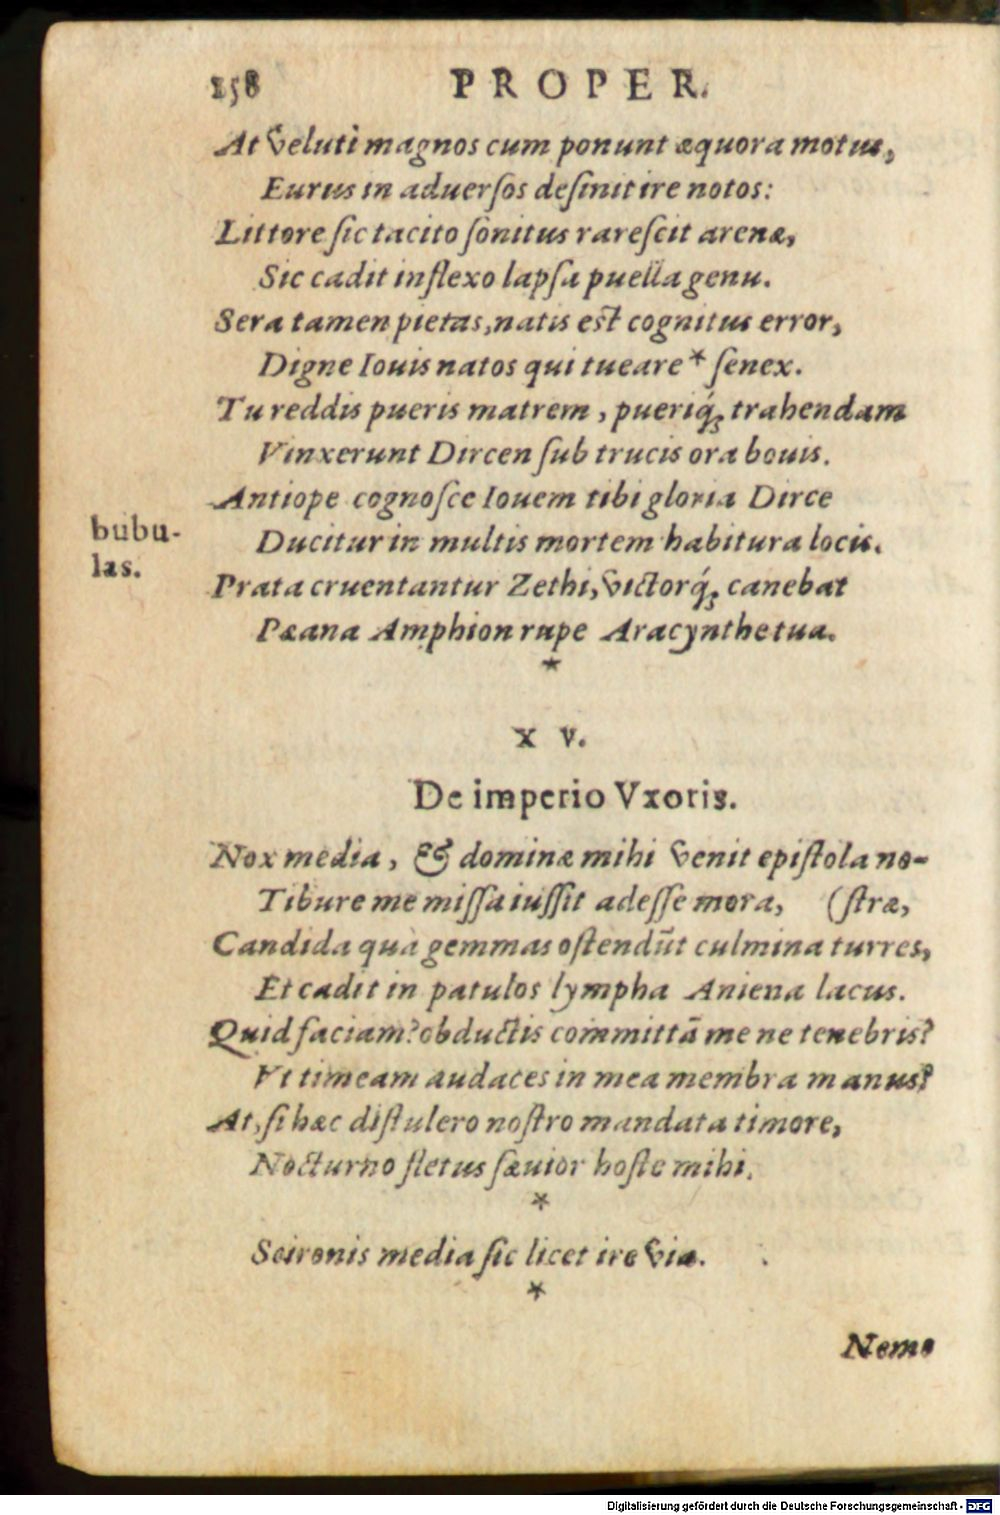 158 PROPER.
At veluti magnos cum ponunt æquora motus,
Eurus in aduersos desinit ire notos:
Littore sic tacito sonitus rarescit arenæ,
Sic cadit inflexo lapsa puella genu.
Sera tamen pietas, natis est cognitus error,
Digne Iouis natos qui tueare * senex.
Tu reddis pueris matrem, pueriq́; trahendam
Vinxerunt Dircen sub trucis ora bouis.
Antiope cognosce Iouem tibi gloria Dirce
bubu-
las.
Ducitur in multis mortem habitura locis.
Prata cruentantur Zethi, victorq́; canebat
Pæana Amphion rupe Aracynthe tua.
*
XV.
De imperio Vxoris.
Nox media, & dominæ mihi venit epistola no-
Tibure me missa iussit adesse mora, (stræ,
Candida quà gemmas ostendũt culmina turres,
Et cadit in patulos lympha Aniena lacus.
Quid faciam? obductis committã me ne tenebris?
Vt timeam audaces in mea membra manus?
At, si hæc distulero nostro mandata timore,
Nocturno fletus sæuior hoste mihi.
*
Scironis media sic licet ire via.
*
Nemo
Digitalisierung gefördert durch die Deutsche Forschungsgemeinschaft - DFG